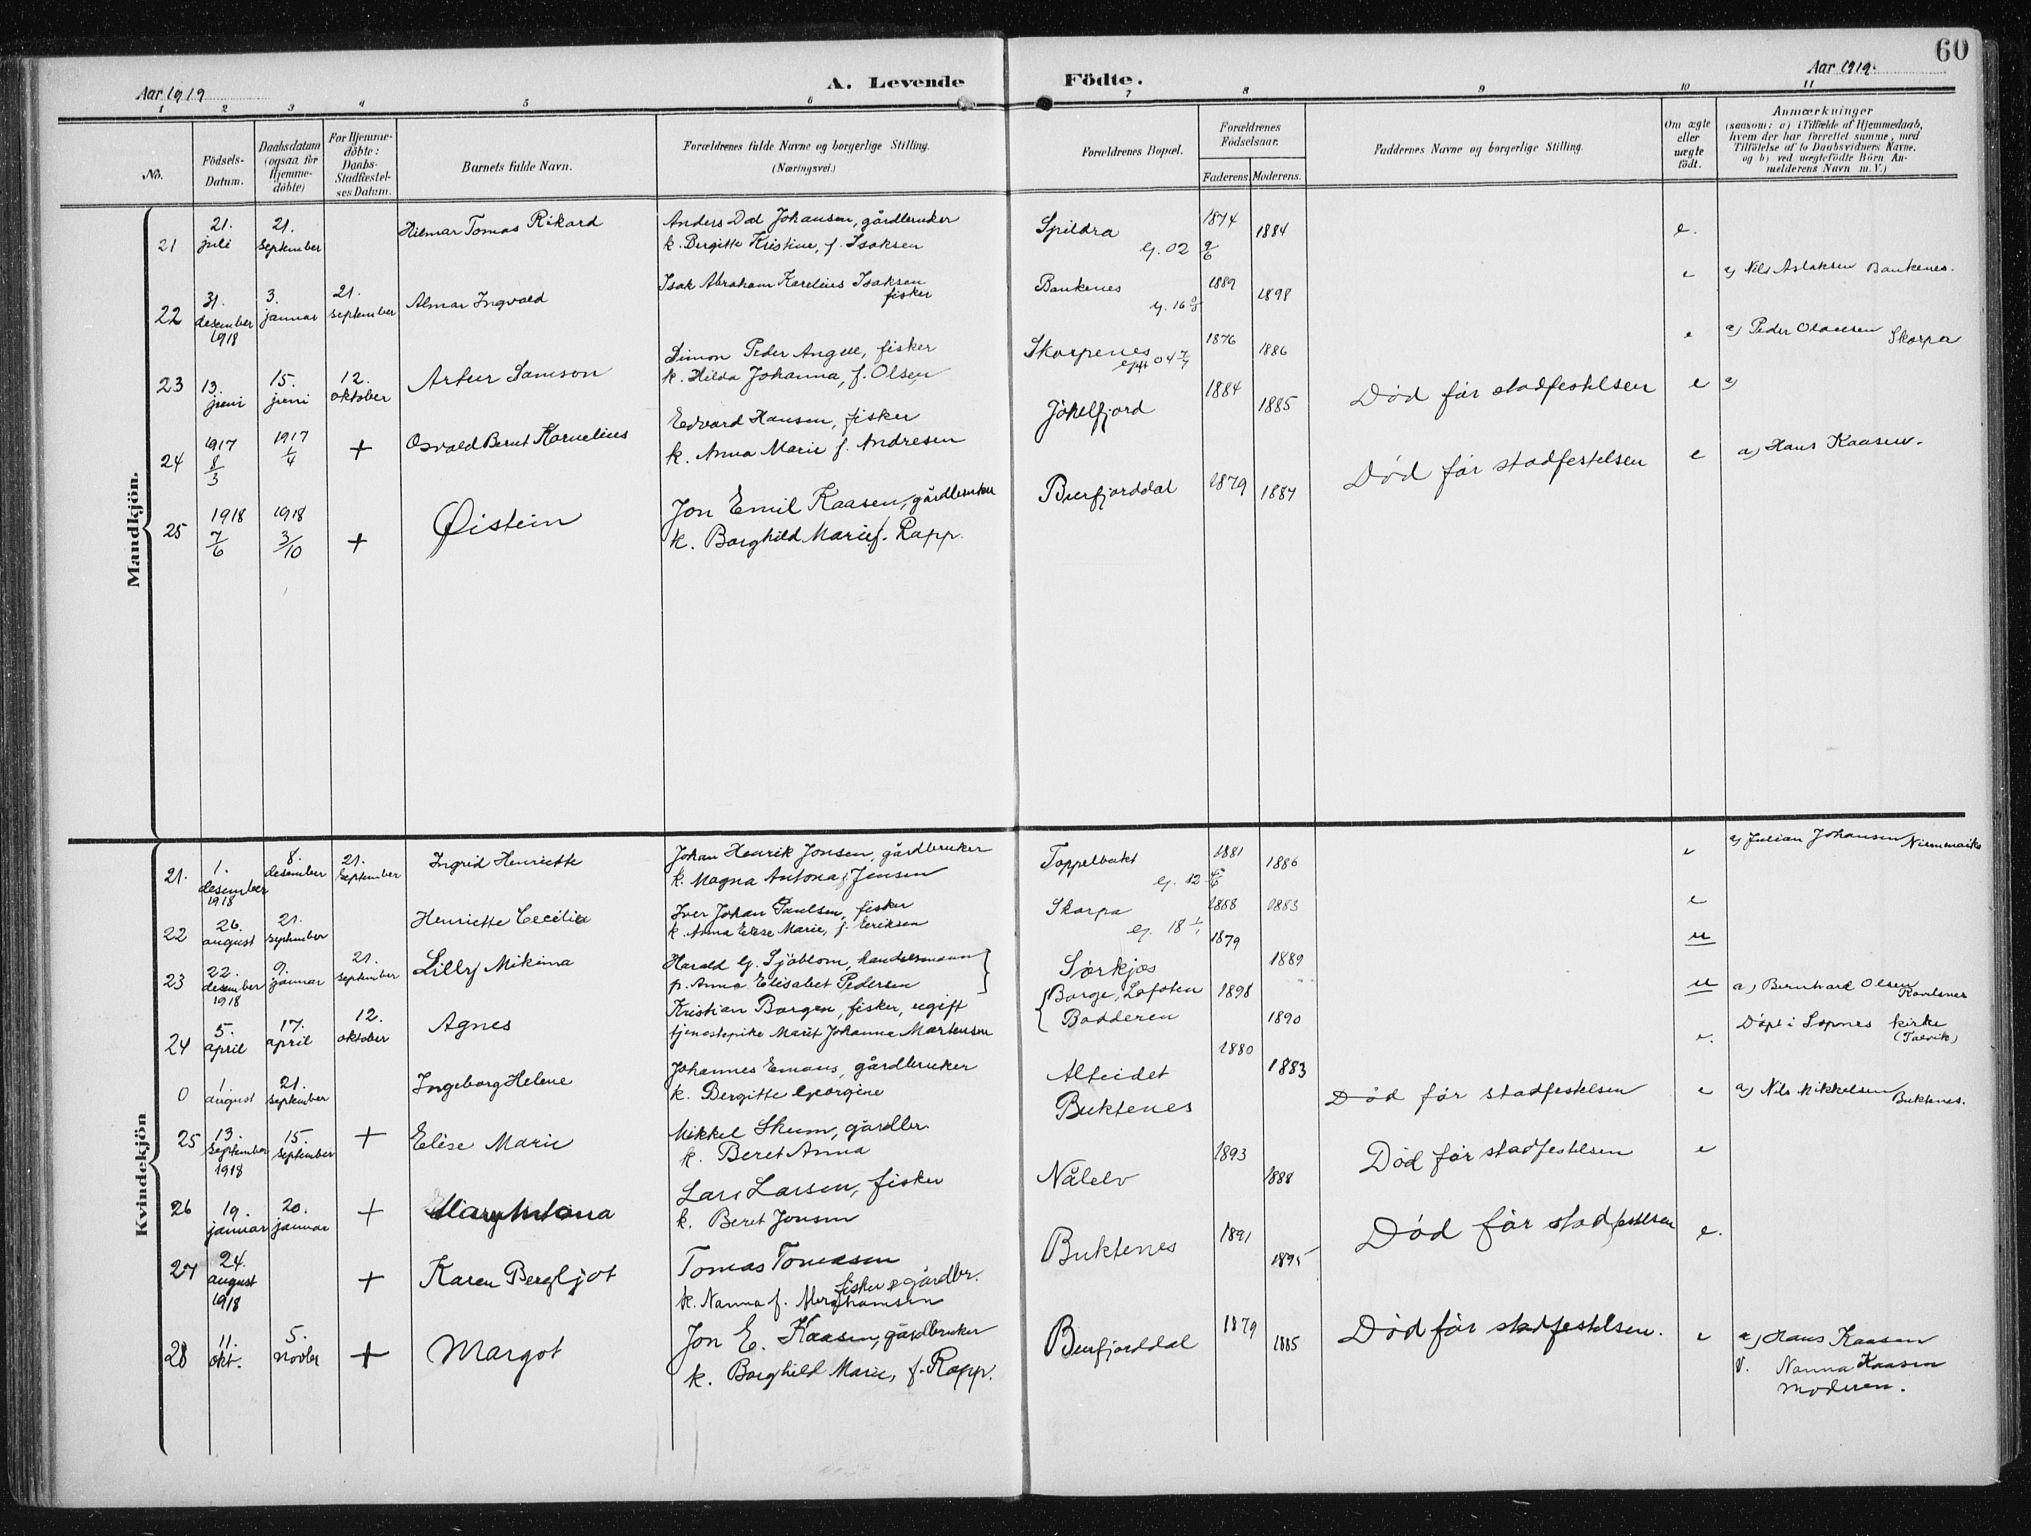 60
Aar 1919
A. Levende Födte.
Aar 1919.
1 2 3 4 5 6 7 8 9 10 11
No.
Födsels-Datum.
Daabsdatum (ogsaa for Hjemme-döbte)
For Hjemme-döbte: Daabs-Stadfæstel-ses Datum.
Barnets fulde Navn.
Forældrenes fulde Navne og borgerlige Stilling.
(Næringsvei.)
Forældrenes Bopæl.
Forældrenes Födselsaar.
Faderens. Moderens.
Faddernes Navne og borgerlige Stilling.
Om ægte eller uægte födt.
Anmærkninger
(saasom: a) i Tilfælde af Hjemmedaab,
hvem der har forrettet samme, med
Tilföielse af to Daabsvidners Navne,
og b) ved uægtefödte Börn An-
melderens Navn m. V.)
Mandkjön.
21 21. juli 21. september Hilmar Tomas Rikard Anders Dal Johansen, gårdbruker
k. Bergitte Kristine, f. Isaksen Spildra G. 02 9/6 1874 1884 e.
22 31. desember 1918 3. januar 21. september Almar Ingvald Isak Abraham Karelius Isaksen
fisker Bankenes G. 16 1889 1898 e a) Nils Aslaksen Bankenes.
23 13. juni 15. juni 12. oktober Artur Samson Simon Peder Angell, fisker
k. Hilda Johanna, f. Olsen Skorpenes 04 7/7 1876 1886 e a) Peder Olaussen Skorpa
24 1917 8/3 1917 1/4 + Osvald Bernt Kornelius Edvard Hansen, fisker
k. Anna Marie f. Andresen Jökelfjord 1884 1885 Död før stadfestelsen e a)
25 1918 7/6 1918 3/10 + Øistein Jon Emil Kaasen, gårdbruker
k. Borghild Marie f. Rapp. Burfjorddal 1879 1884 Död før stadfestelsen e a) Hans Kaasen.
Kvindekjön
21. 1. desember 1918 8. desember 21. september Ingrid Henriette Johan Henrik Jonsen, gårdbruker
k. Magna Antona f. Jensen Toppelbukt G. 12 1881 1886 e a) Julian Johansen
22 26. august 21. september Henriette Cecilie Iver Johan Paulsen, fisker
k. Anna Elese Marie, f. Eriksen Skorpa G. 18 1/1 1888 1883 e
23 22. desember 1918 9. januar 21. september Lilly Mikima Harald G. Sjöblom, handelsmann
p. Anna Elisabet Pedersen Sørkjos 1879 1889 u
24 5. april 17. april 12. oktober Agnes Kristian Borgen, fisker, ugift
tjenestepike Marit Johanna Martensen Borge, Lofoten
Badderen 1898 1890 u a) Bernhard Olsen
0 1. august 21. september Ingeborg Helene Johannes Emaus, gårdbruker
k. Bergitte Georgine Alteidet 1880 1883 e. Döpt i Sopnes kirke
(Talvik)
25 13. september 1918 15. september + Elise Marie Mikkel Skum, gårdbr.
k. Beret Anna Buktenes Död før stadfestelsen e a) Nils Mikkelsen Buktenes.
26 19. januar 20. januar + Mary Antona Lars Larsen, fisker
k. Beret Jonsen Nålelv 1893 1888 Död før stadfestelsen e
27 24. august 1918 + Karen Bergljot Tomas Tomasen
fisker & gårdbr.
k. Nanna f. Abrahamsen Buktenes 1891 1895 Död før stadfestelsen e.
28 11. okt. 5. novbr + Margot Jon E. Kaasen, gårdbruker
k. Borghild Marie, f. Rapp. Burfjorddal 1879 1885 Död før stadfestelsen. e a) Hans Kaasen
V. Nanna Kaasen
Moderen.